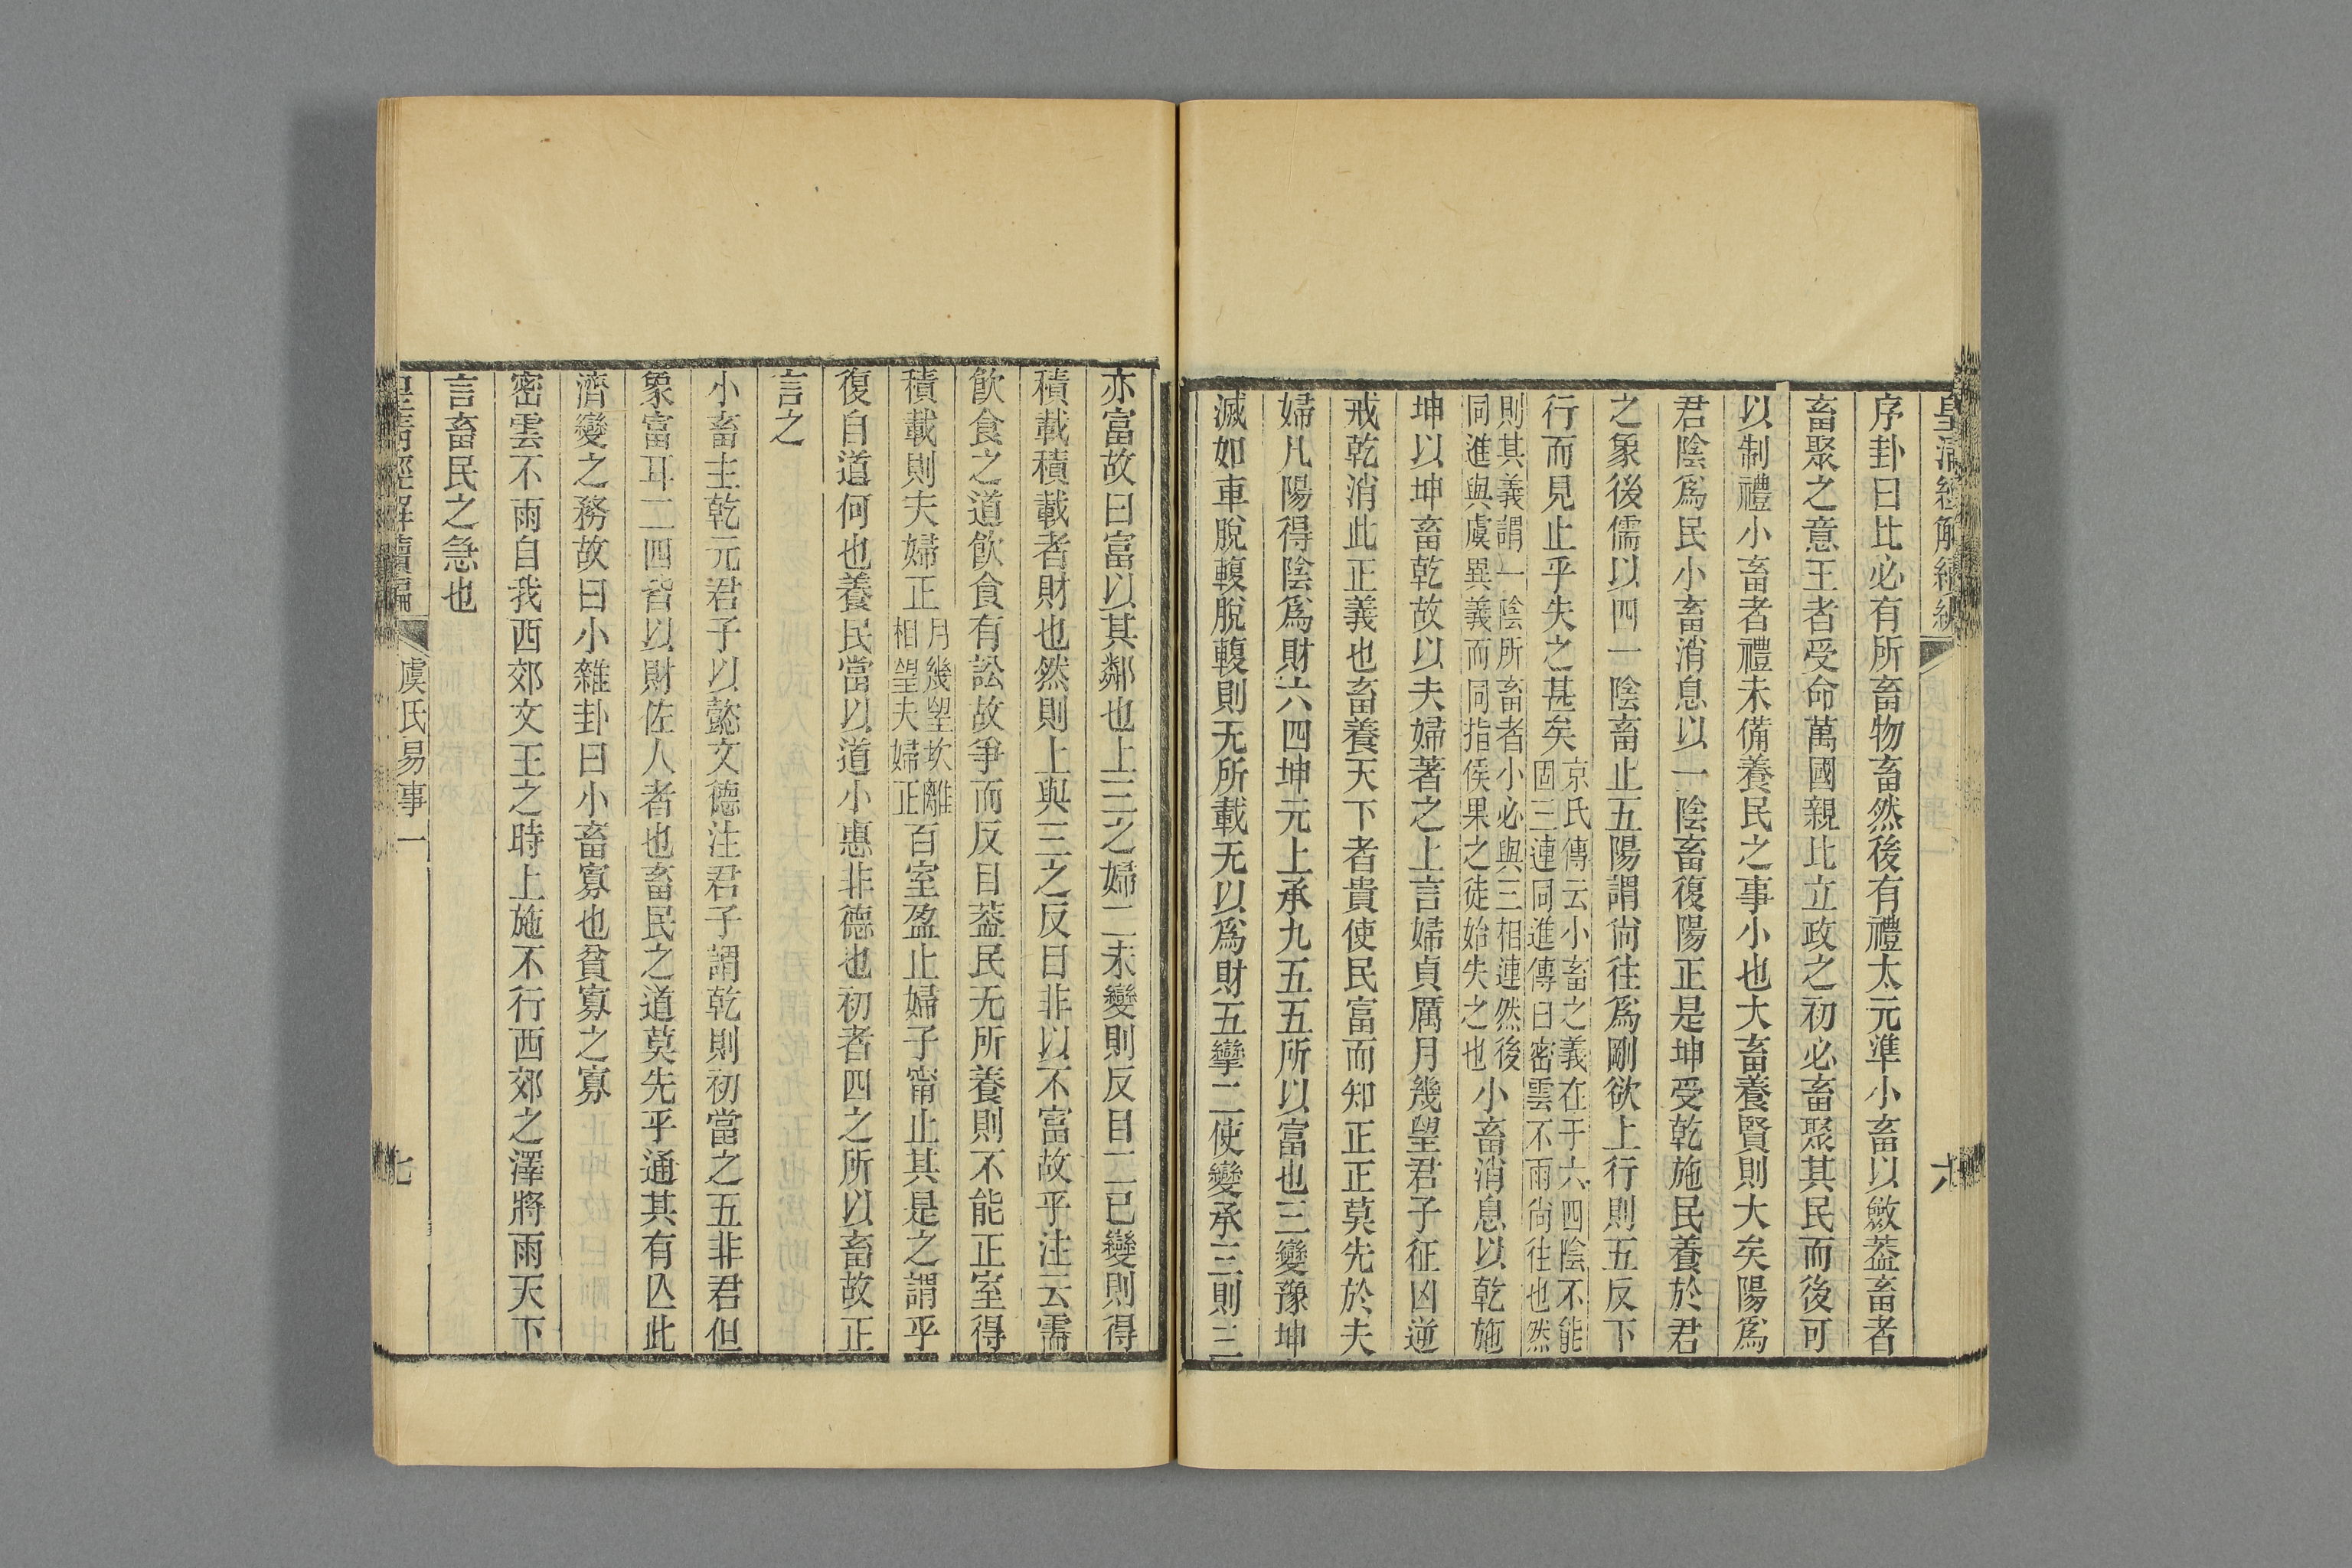 皇清經解續編
六
序卦曰比必有所畜物畜然後有禮太元準小畜以斂葢畜者
畜聚之意王者受命萬國親比立政之初必畜聚其民而後可
以制禮小畜者禮未備養民之事小也大畜養賢則大矣陽爲
君陰爲民小畜消息以一陰畜復陽正是坤受乾施民養於君
之象後儒以四一陰畜止五陽謂尙往爲剛欲上行則五反下
行而見止乎失之甚矣京氏傳云小畜之義在于六四陰不能
固三連同進傳曰密雲不雨尙往也然
則其義謂一陰所畜者小必與三相連然後
同進與虞異義而同指侯果之徒始失之也小畜消息以乾施
坤以坤畜乾故以夫婦著之上言婦貞厲月幾望君子征凶逆
戒乾消此正義也畜養天下者貴使民富而知正正莫先於夫
婦凡陽得陰爲財六四坤元上承九五五所以富也三變豫坤
滅如車脫輹脫輹則无所載无以爲財五攣二使變承三則三
亦富故曰富以其鄰也上三之婦二未變則反目二已變則得
積載積載者財也然則上與三之反目非以不富故乎注云需
飮食之道飮食有訟故爭而反目葢民无所養則不能正室得
積載則夫婦正月幾望坎離
相望夫婦正百室盈止婦子甯止其是之謂乎
復自道何也養民當以道小惠非德也初者四之所以畜故正
言之
小畜主乾元君子以懿文德注君子謂乾則初當之五非君但
象富耳二四皆以財佐人者也畜民之道莫先乎通其有亾此
濟變之務故曰小雜卦曰小畜寡也貧寡之寡
密雲不雨自我西郊文王之時上施不行西郊之澤將雨天下
言畜民之急也
皇清經解續編
虞氏易事一
七